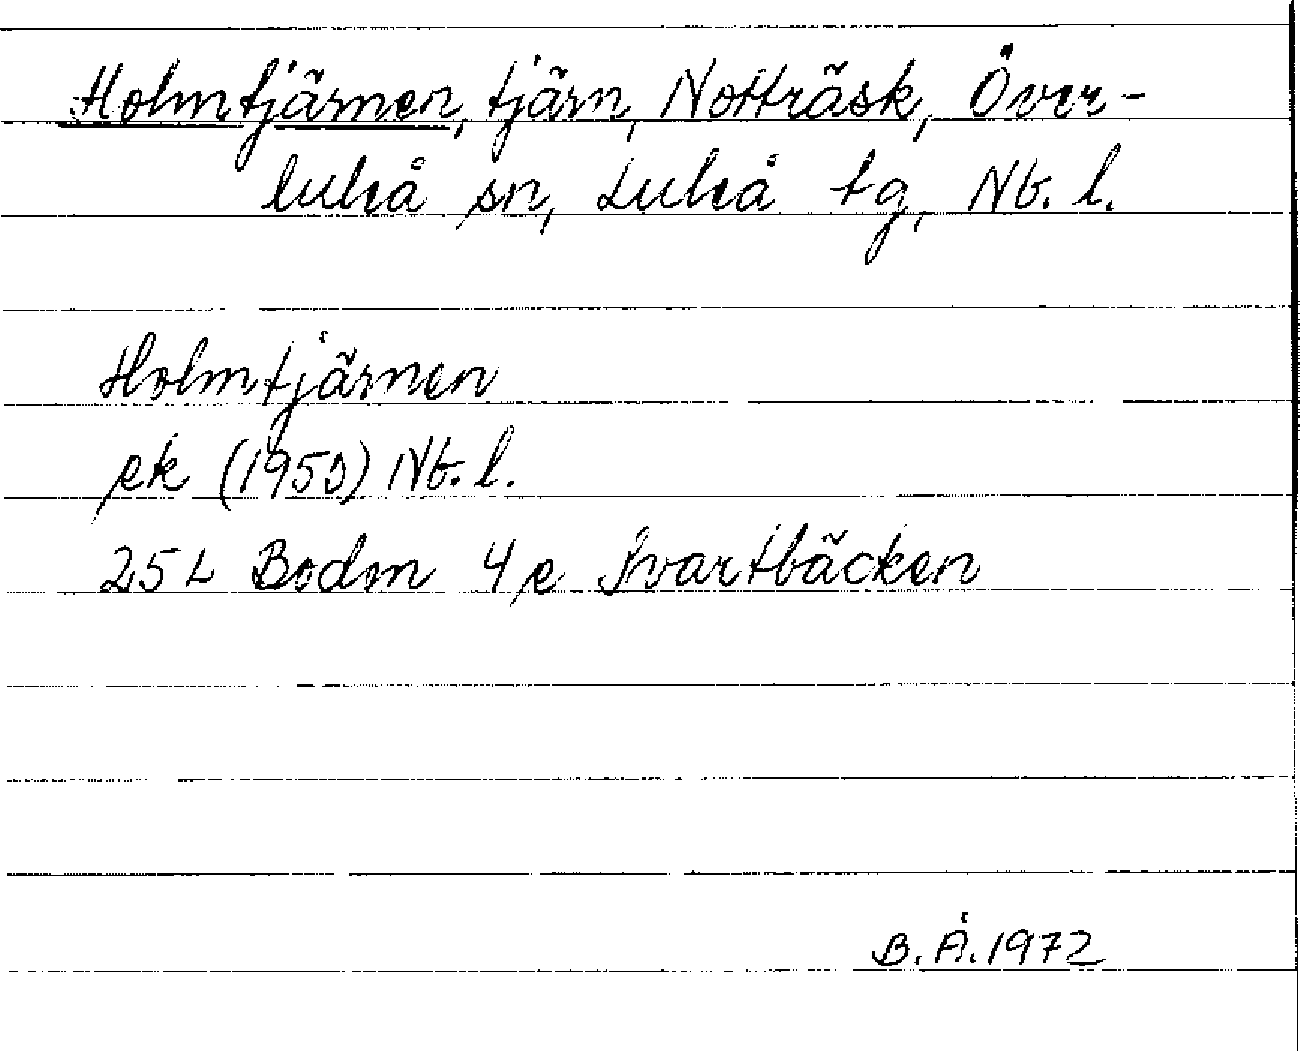 Holmtjärnen, tjärn, Notträsk, Över-
luleå sn, Luleå tg, Nb. l.
Holmtjärnen
ek (1950) Nb. l.
25 L Boden 4 e Svartbäcken
B. Å. 1972